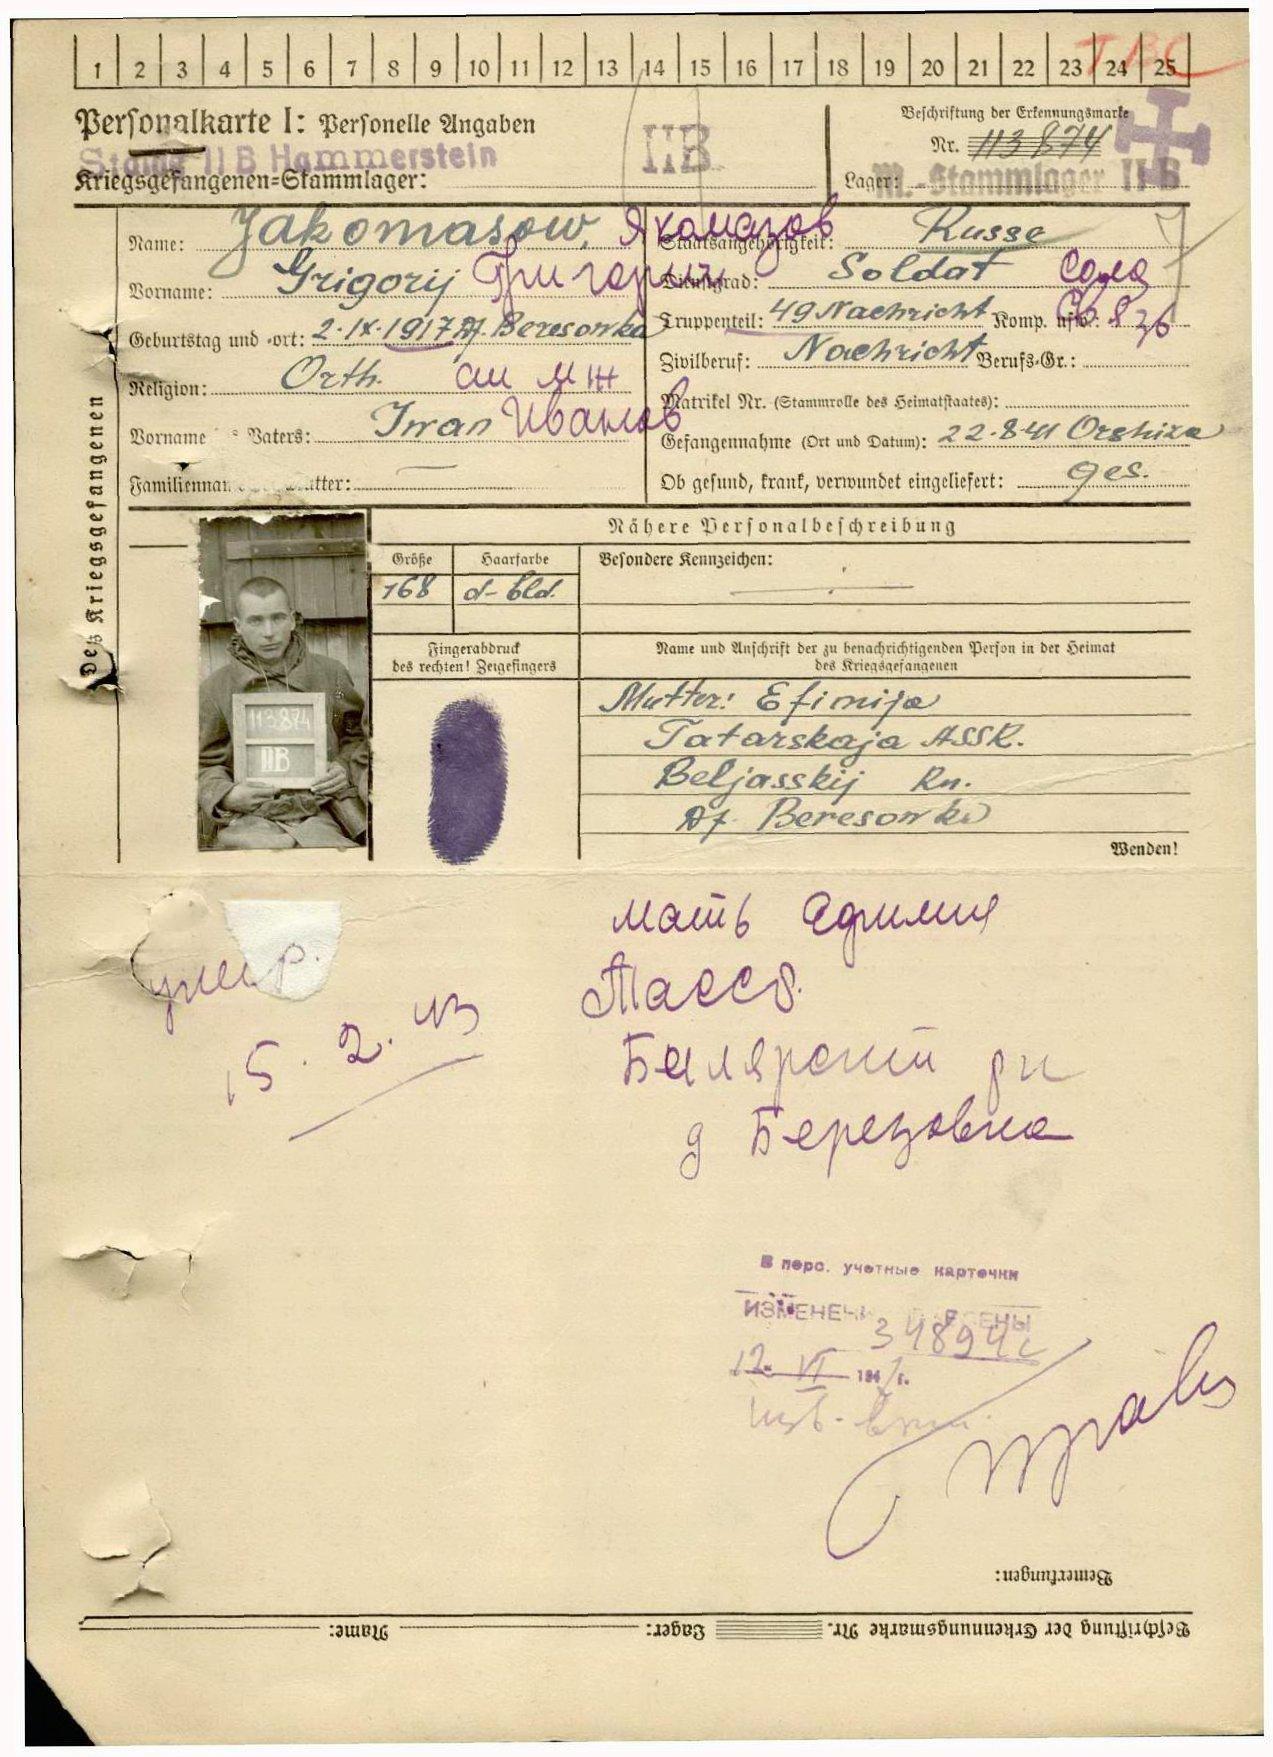 1 2 3 4 5 6 7 8 9 10 11 12 13 14 15 16 17 18 19 20 21 22 23 24 25
TBC
Personalkarte I: Personelle Angaben
Stalag II B Hammerstein
Kriegsgefangenen-Stammlager:
IIB
Beschriftung der Erkennungsmarke
Nr. 113874
Lager: M.-Stammlager IIB
Des Kriegsgefangenen
Name: Jakomasow, Якомазов
Vorname: Grigorij Григорий
Geburtstag und -ort: 2.IX.1917 Df. Beresowka
Religion: Orth.
Vorname Vaters: Iwan Иванов
Familienname Mutter: —
Staatsangehörigkeit: Russe
Dienstgrad: Soldat Солд
Truppenteil: 49 Nachricht Komp. usw.:
Zivilberuf: Nachricht Berufs-Gr.:
Matrikel Nr. (Stammrolle des Heimatstaates):
Gefangennahme (Ort und Datum): 22.8.41 Orshiza
Ob gesund, krank, verwundet eingeliefert: ges.
Nähere Personalbeschreibung
Größe
168
Haarfarbe
d-bld.
Besondere Kennzeichen: —
113874
IIB
Fingerabdruck
des rechten! Zeigefingers
Name und Anschrift der zu benachrichtigenden Person in der Heimat
des Kriegsgefangenen
Mutter: Efimija
Tatarskaja ASSR.
Beljasskij Rn.
Df. Beresowka
Wenden!
умер.
15.2.43
мать Ефимия
Тасср.
Билярский рн
д Березовка
В перс. учетные карточки
ИЗМЕНЕНИЯ ВНЕСЕНЫ
34894с
12. VI 194 г.
Bemerkungen:
Beschriftung der Erkennungsmarke Nr. Lager: Name: